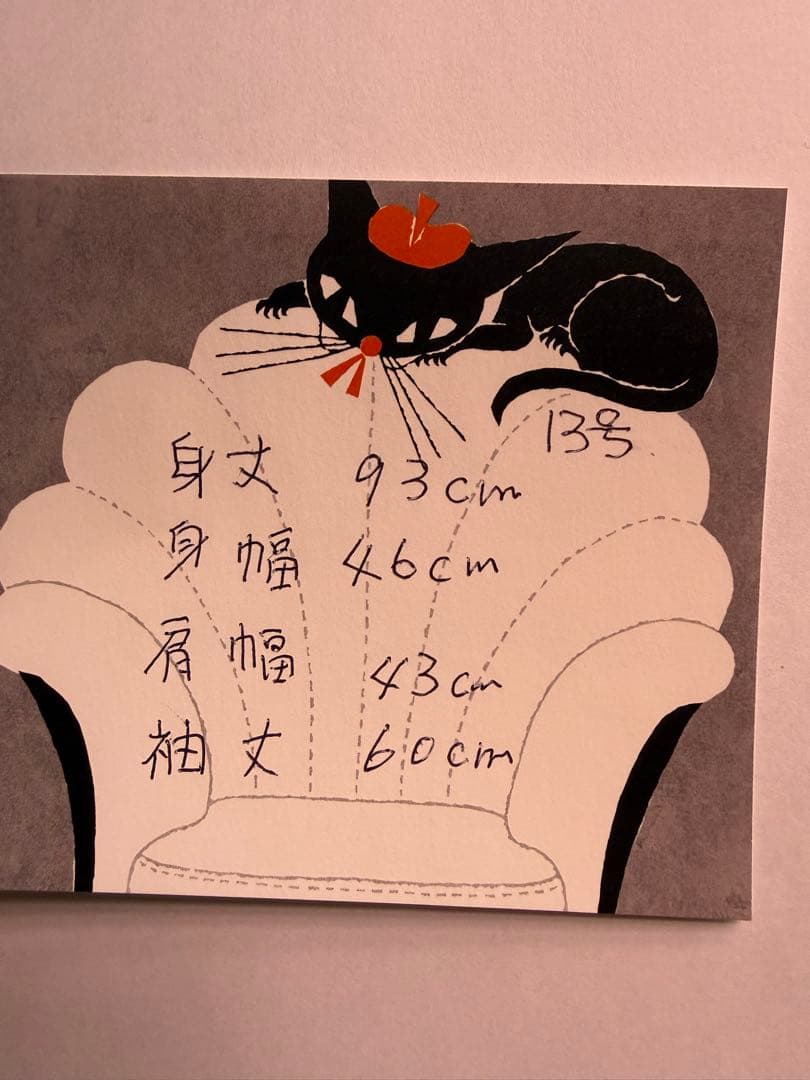 13号
身丈 93cm
身幅 46cm
肩幅 43cm
袖丈 60cm